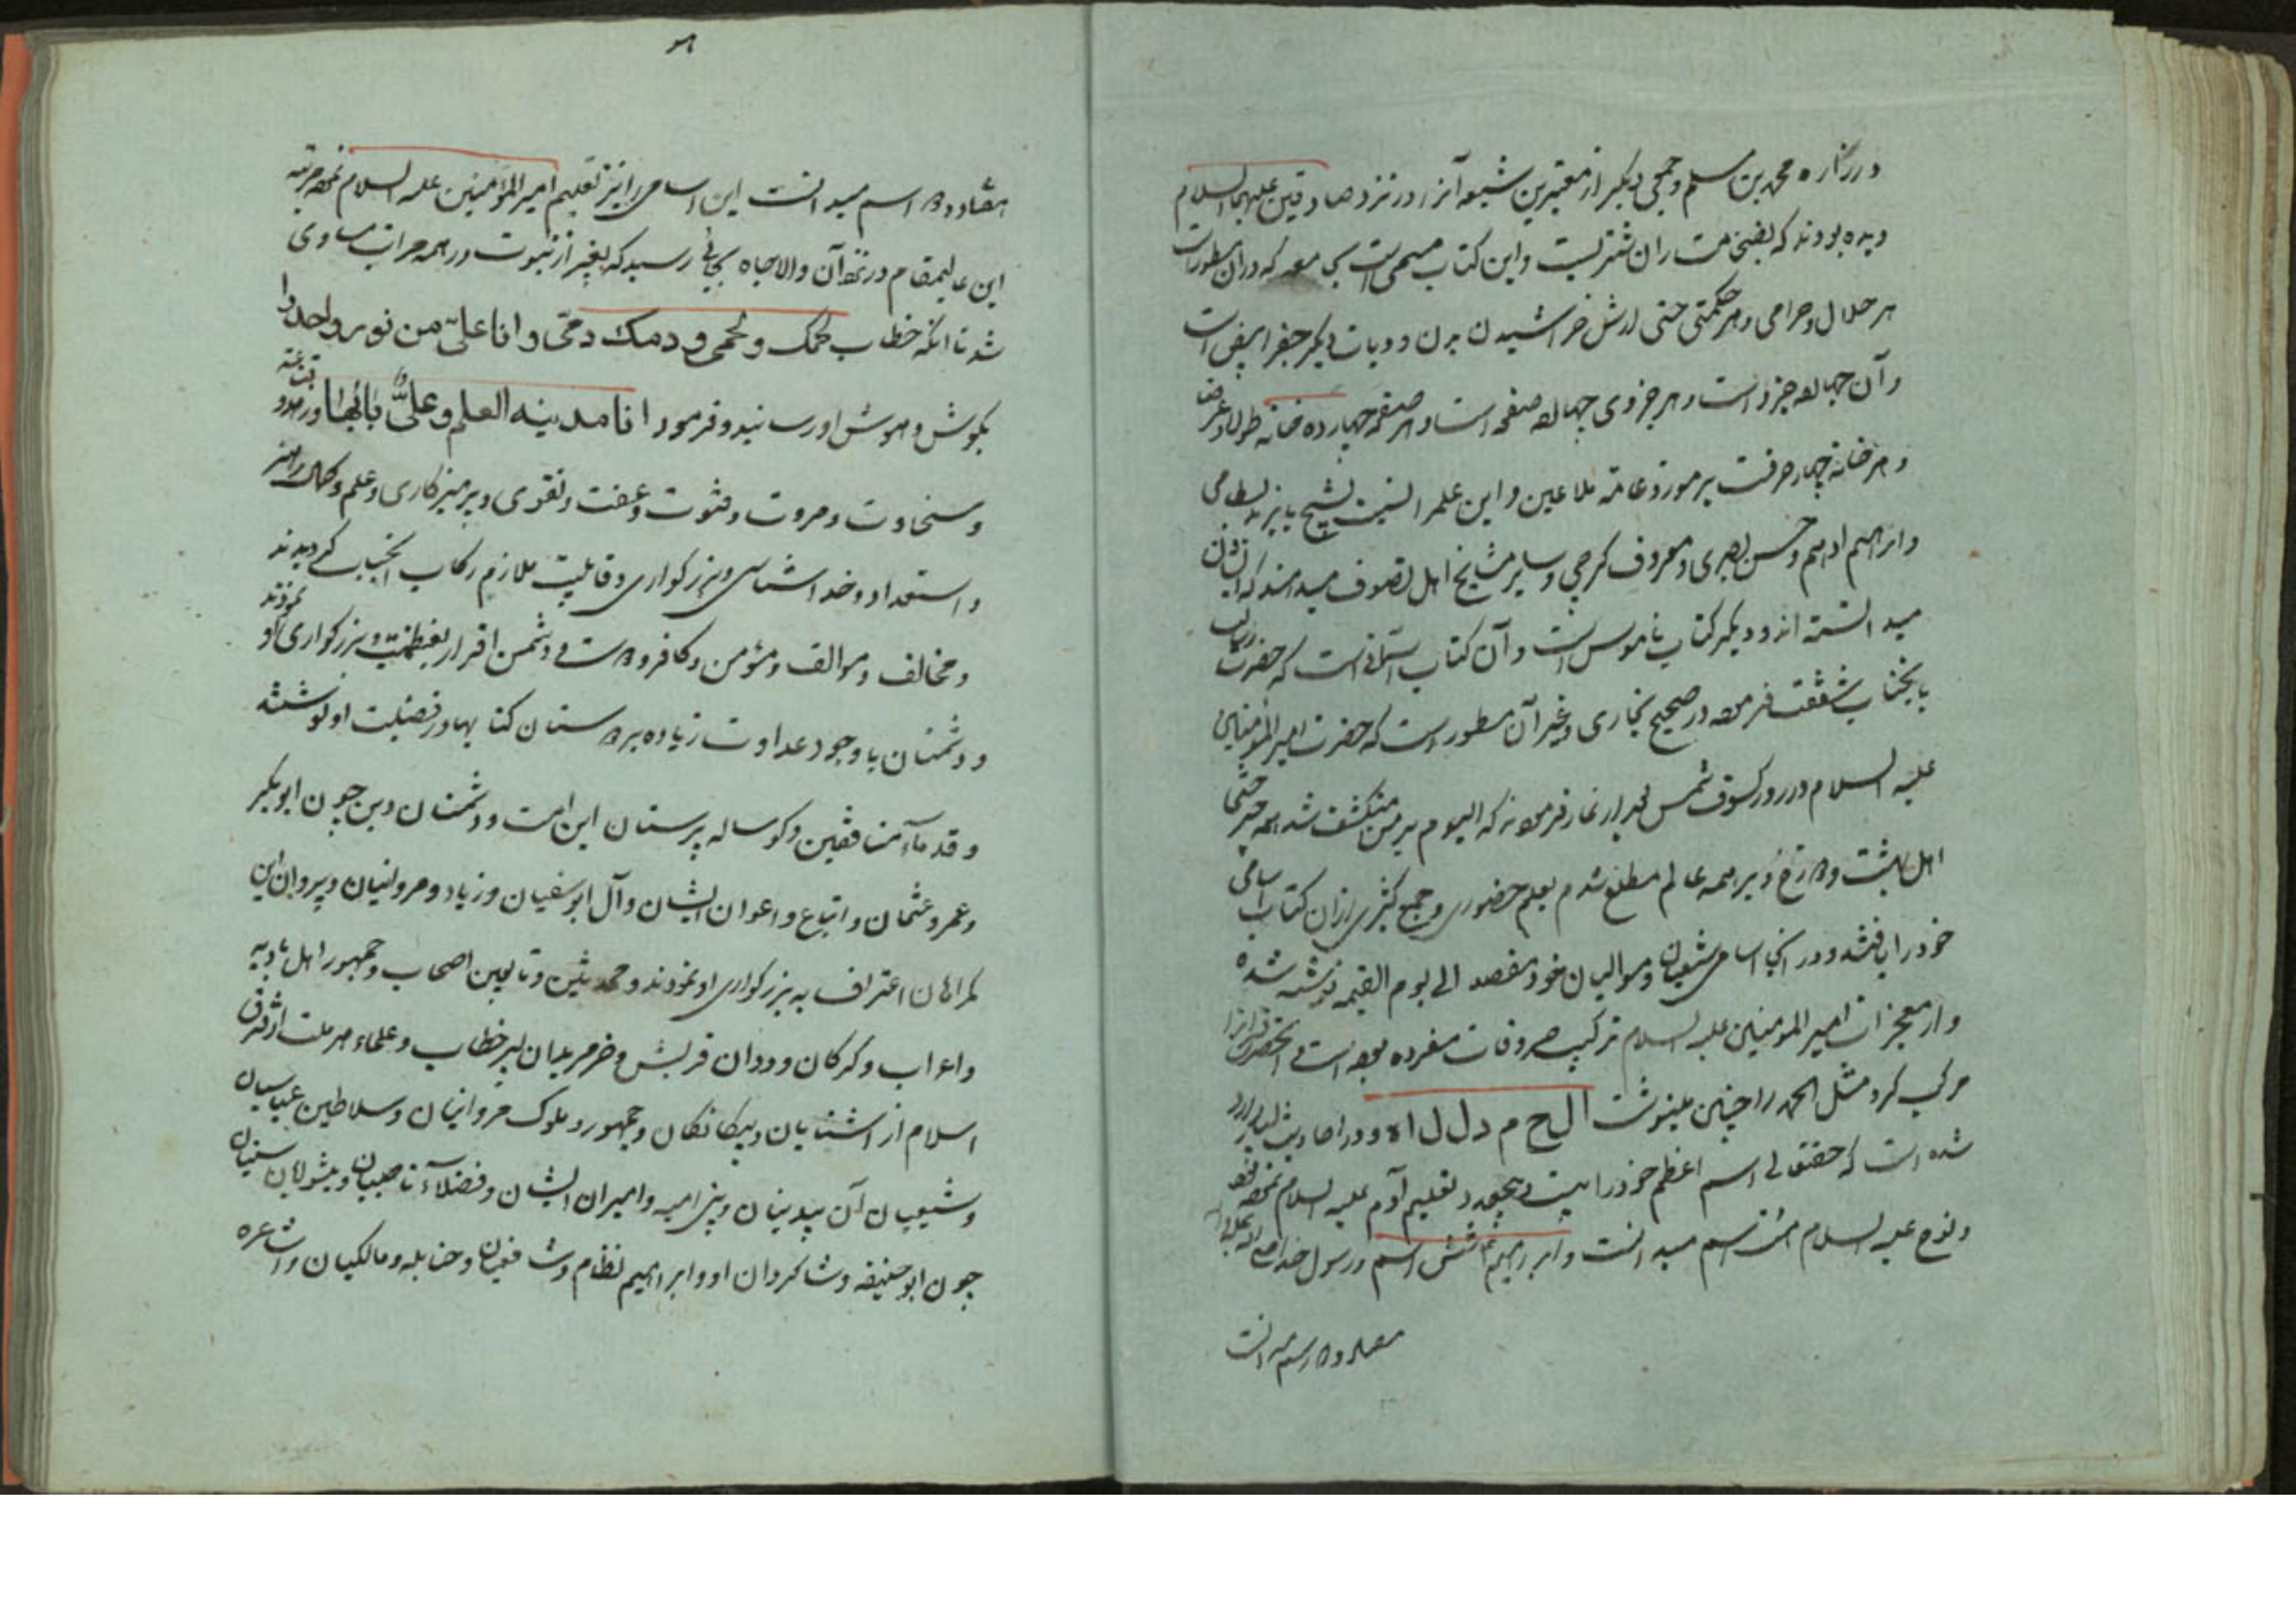 و زراره و محمد بن مسلم و جمعی دیکر از معتبرین شیعه آنرا در نزد صادقین علیهما السلام
دیده بودند که بضخامت ران شتریست و این کتاب مسمی است بجامعه که در آن مسطور است
هر حلال و حرامی و هر حکمتی حتی ارش خراشیدن بدن و دیات دیکر جفر ابیض است
و آن چهارده جزو است و هر جزوی چهارده صفحه است و هر صفحه چهارده خانه طولا و عرضا
و هر خانه چهار حرفست بر
و ابراهیم ادهم و حسن بصری و معروف کرخی و سایر مشایخ اهل تصوف میدانند که ایشان
میدانسته اند و دیکر کتاب ناموس است و آن کتاب آسمانی است که حضرت رسالت
بآنجناب شفقت فرموده در صحیح بخاری و غیر آن مسطور است که حضرت امیر المؤمنین
علیه السلام در روز کسوف شمس بعد از نماز فرمودند که الیوم بر من منکشف شد همه چیز حتی
اهل بهشت و دوزخ و بر همه عالم مطلع شدم بعلم حضوری و جمع کثیری از آن کتاب اسامی
خود را یافتند و در آنجا اسامی شیعیان و موالیان خود مفصلا الی یوم القیمه نوشته شده
و از معجزات امیر المومنین علیه السلام ترکیب حروفات مفرده بوده است
مرکب کرد مثل الحمد را چنین مینوشت ا ل ح م د ل ل ا ه و در احادیث بسیار وارد
شده است که حقتعالی اسم اعظم خود را بیست و پنج تعلیم آدم علیه السلام نموده بود
و نوح علیه السلام هشت اسم میدانست و ابراهیم شش اسم و رسول خدا
هفتاد و دو اسم میدانست
هفتاد و دو اسم میدانست این اسامی را نیز تعلیم امیر المؤمنین علیه السلام نموده مرتبه
این عالیمقام در نزد آن والاجاه بجائی رسید که بغیر از نبوت در همه مراتب مساوی
شد تا آنکه خطاب لحمک لحمی و دمک دمی و انا علیّ من نور واحد را
بکوش و هوش او رسانید و فرمود انا مدینه العلم و علیٌّ بابُها و در
و سخاوت و مروت و فتوت و عفت و تقوی و پرهیزکاری و علم و کمال
و استعداد و خداشناسی و بزرکواری و قابلیت ملازم رکاب آنجناب کردیدند
و مخالف و موالف و مؤمن و کافر و دوست و دشمن اقرار بعظمت و بزرکواری او نمودند
و دشمنان با وجود عداوت زیاده بر دوستان کتابها در فضیلت او نوشتند
و قدمآء منافقین و کوساله پرستان این امت و دشمنان دین چون ابوبکر
و عمر و عثمان و اتباع و اعوان ایشان و آل ابوسفیان و زیاد و مروانیان و پیروان این
کمراهان اعتراف به بزرکواری او نمودند و محدثین و تابعین اصحاب و جمهور اهل بادیه
و اعراب و کرکان و ددان قریش و علماء هر ملت از فرق
اسلام از آشنایان و بیکانکان و جمهور و ملوک مروانیان و سلاطین عباسیان
و شیعیان آن بیدینان و بنی امیه و امیران ایشان و فضلآء ناصبیان و پیشوایان سنیان
چون ابو حنیفه و شاکردان او و ابراهیم نظام و شافعیان و حنابله و مالکیان و اشاعره